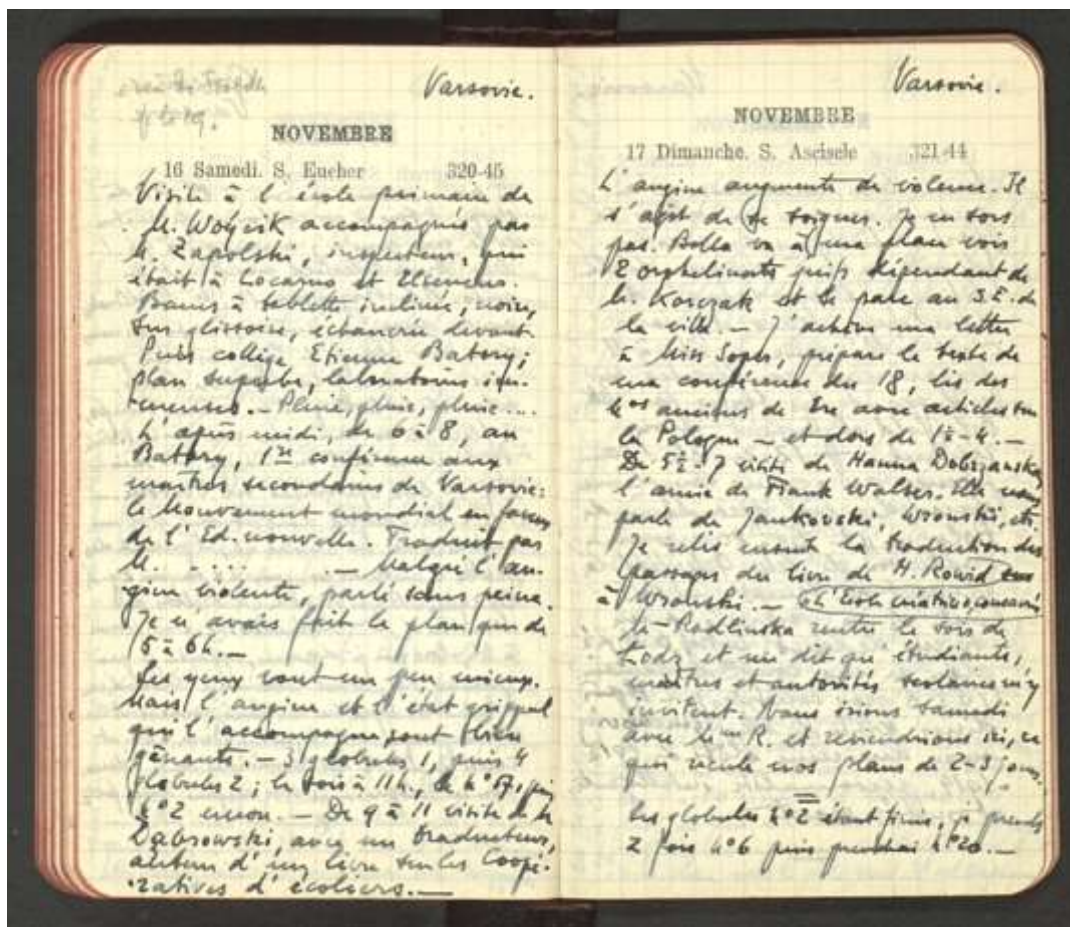 Varsovie.
NOVEMBRE
16 Samedi. S. Eucher 320-45
Visite à l'école primaire de
M. Wojcik accompagnés par
M. Zapolski, inspecteur, qui
était à Locarno et Elseneur.
Bancs à tablette inclinée, noire,
sur glissoire, échancrée devant.
Puis collège Etienne Batory;
plan superbe, laboratoires im-
menses. – Pluie, pluie, pluie...
L'après midi, de 6 à 8, au
Batory, 1re conférence aux
maîtres secondaires de Varsovie:
le Mouvement mondial en faveur
de l'Ed. nouvelle. Traduit par
M. . . . . . — Malgré l'an-
gine violente, parlé sans peine.
Je n'avais fait le plan que de
5 à 6h. —
Les yeux vont un peu mieux.
Mais l'angine et l'état grippal
qui l'accompagne sont bien
gênants. – 3 globules 1, puis 4
globules 2; le soir à 11h., le n°
n°2 encore. – De 9 à 11 visite de
Dabrowski, avec un traducteur,
auteur d'un livre sur les Coopé-
ratives d'écoliers. —
Varsovie.
NOVEMBRE
17 Dimanche. S. Ascisele 321-44
L'angine augmente de violence. Il
s'agit de se soigner. Je ne sors
pas. Bolla va à ma place voir
2 orphelinats juifs dépendant de
M. Korczak et le parc au S.E. de
la ville – J'achève ma lettre
à Miss Soper, prépare le texte de
ma conférence du 18, lis des
nos anciens de Ere avec articles sur
la Pologne – et dors de 1½-4. —
De 5½-7 visite de Hanna Dobrzanska
l'amie de Frank Walser. Elle nous
parle de Jankovski, Wronski, etc.
Je relis ensuite la traduction des
passages du livre de M. Rowid sur
à Wronski. – L'Ecole créatrice, consacrés
Mme Radlinska rentre le soir de
Lodz et me dit qu'étudiants,
maîtres et autorités scolaires m'y
invitent. Nous irions samedi
avec Mme R. et reviendrions ici, ce
qui recule nos plans de 2-3 jours.
Les globules n°2 étant finis, je prends
2 fois n°6 puis prendrai n°20. —